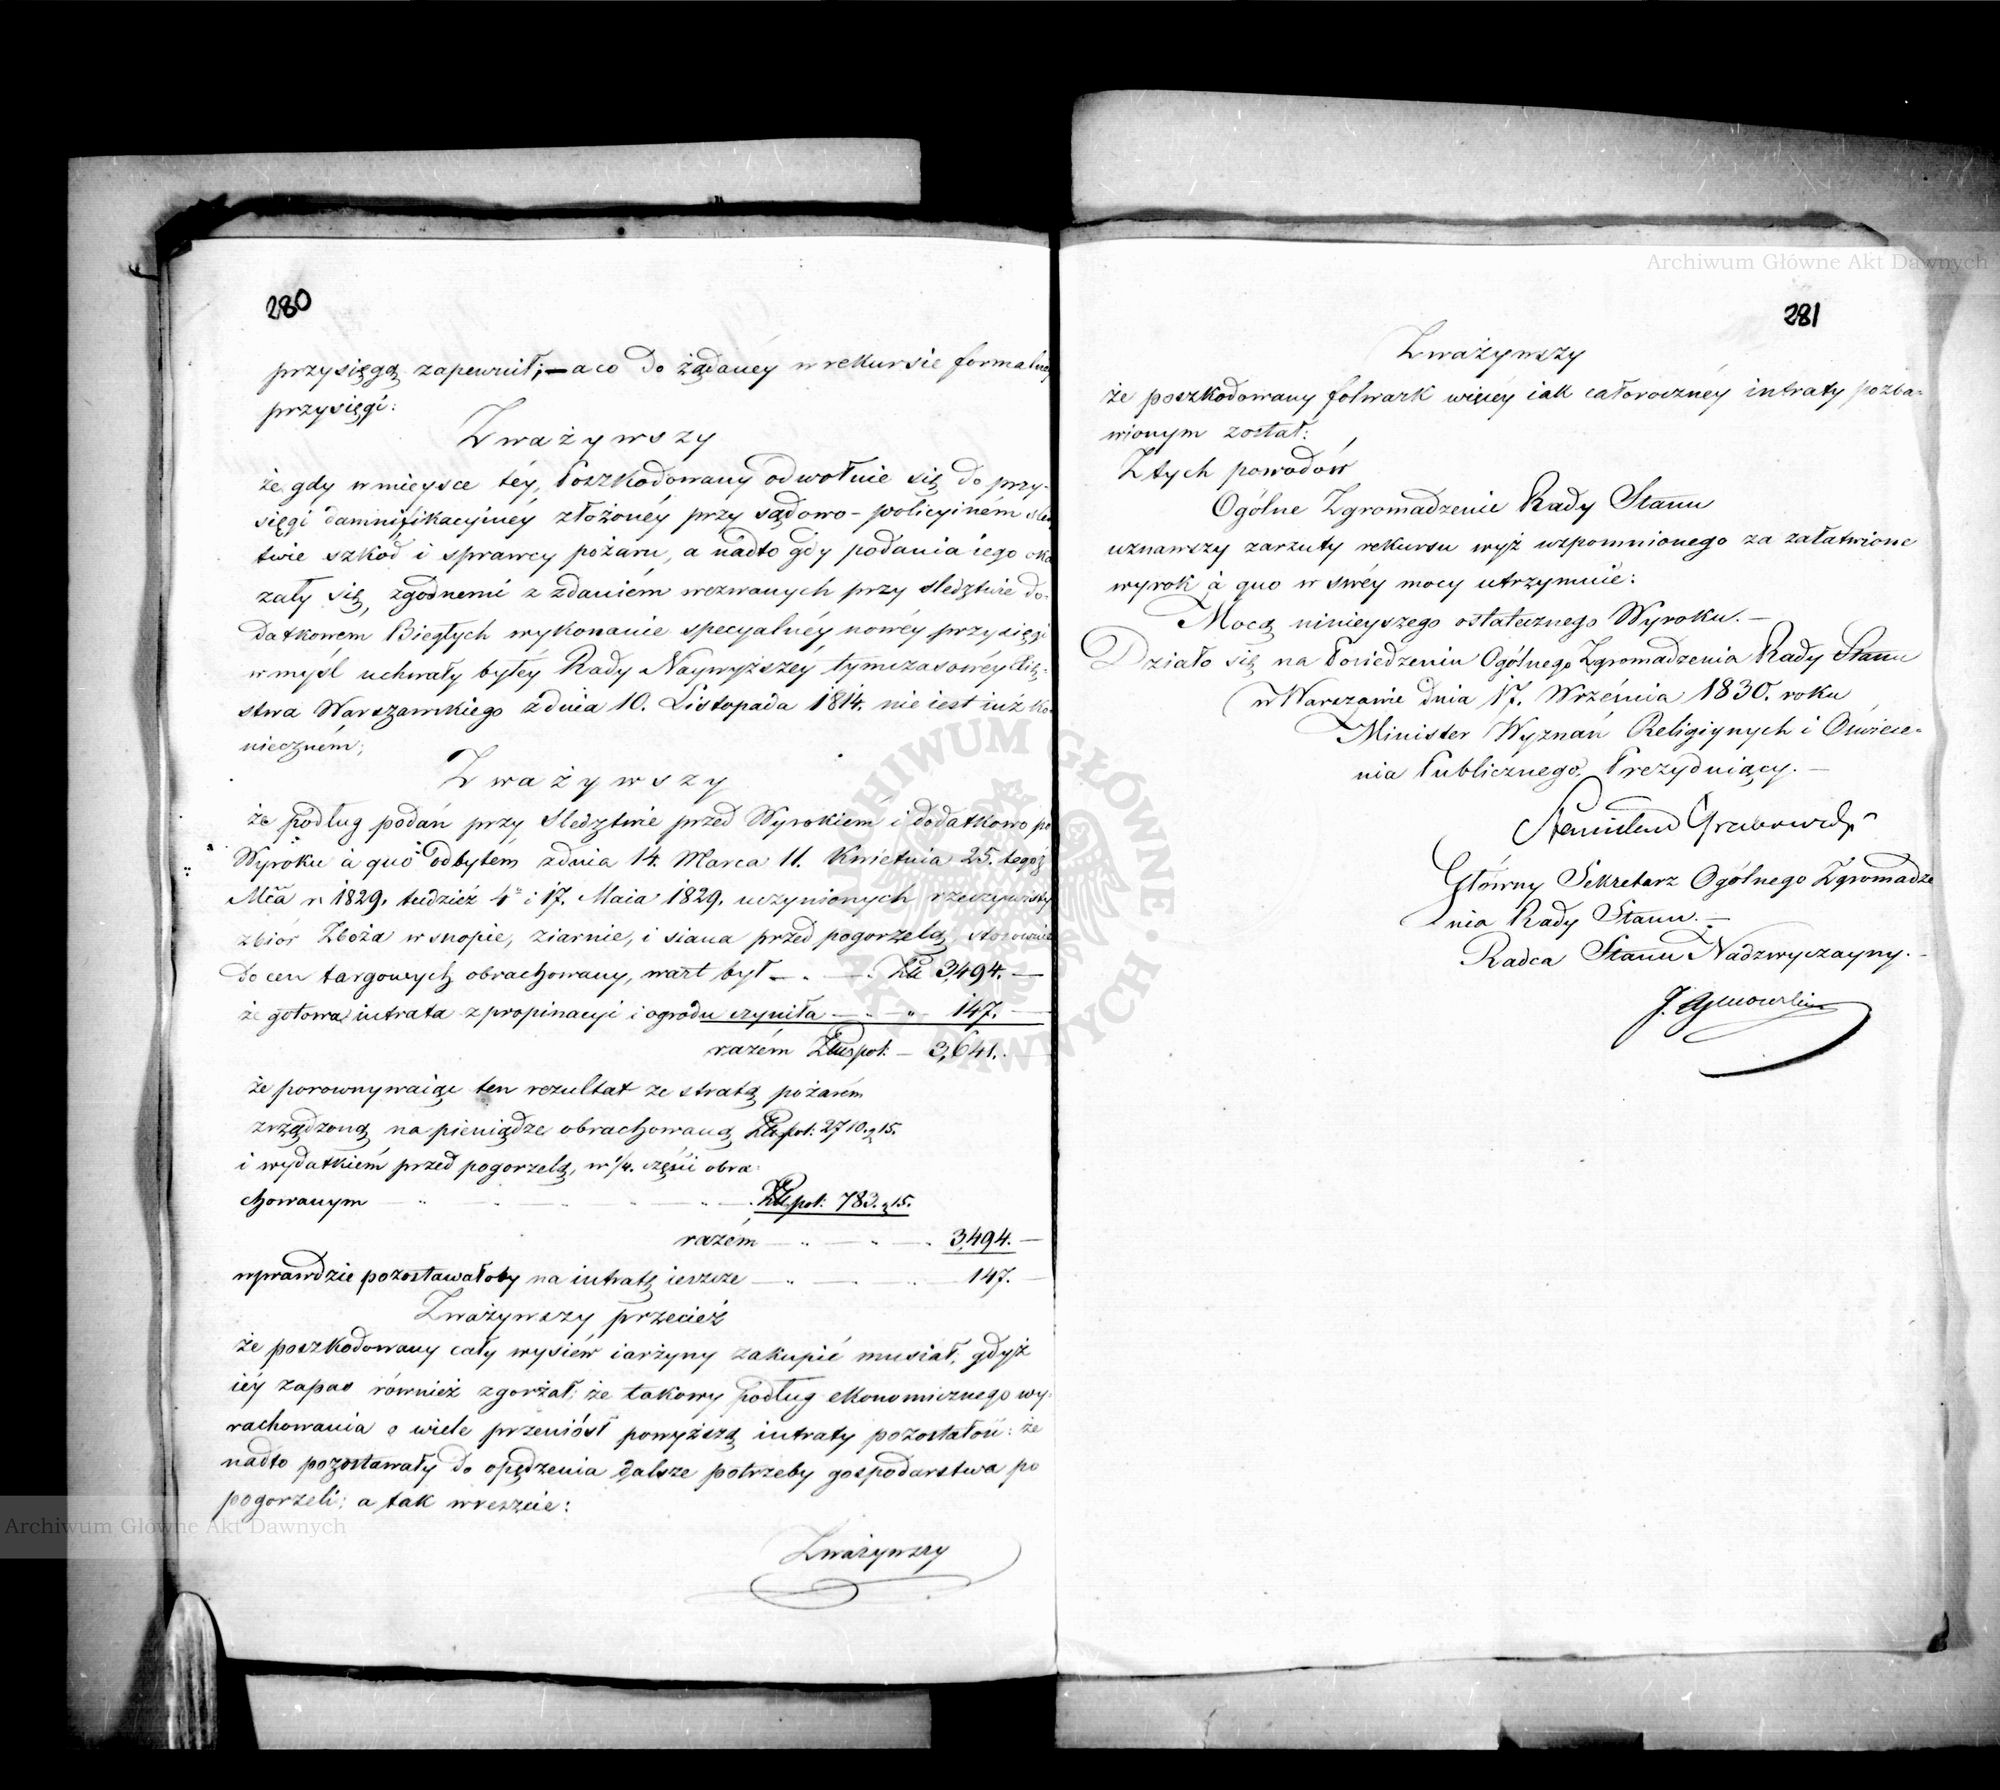 280
przysięgą zapewnił; — a co do żądanéy w rekursie formalnéy
przysięgi:
Zważywszy
że gdy w mieysce téy, Poszkodowany odwołuie się do przy-
sięgi damnifikacyinéy złożonéy przy sądowo-policyiném śledz
twie szkód i sprawcy pożaru, a nadto gdy podania iego oka
zały się, zgodnemi z zdaniém wezwanych przy sledztwie do-
datkowem Biegłych wykonanie specyalnéy nowéy przysięgi
w myśl uchwały byłéy Rady Naywyższéy tymczasowéy Xię-
stwa Warszawskiego z dnia 10. Listopada 1814. nie iest iuż ko-
nieczném;
Zważywszy
że podług podań przy Sledztwie przed Wyrokiém i dodatkowo po
Wyroku à quo odbytém z dnia 14. Marca 11. Kwietnia 25. tegoż
Mca r. 1829. tudzież 4 i 17. Maia 1829. uczynionych rzeczywisty
zbiór Zboża w snopie, ziarnie, i siana przed pogorzelą, stosownie
do cen targowych obrachowany, wart był — Złł 3,494. —
że gotowa intrata z propinacyi i ogrodu czyniła — " — 147. —
razém Złł pol: — 3,641. —
że porownywaiąc ten rezultat ze stratą pożarém
zrządzoną na pieniądze obrachowaną Złł pol: 2710. g 15.
i wydatkiém przed pogorzelą, w ¼. części obra-
chowanym — Złł pol: 783. g 15.
razém — 3,494. —
wprawdzie pozostawałoby na intratę ieszcze — 147. —
Zważywszy przecież
że poszkodowany cały wysiéw iarzyny zakupić musiał, gdyż
iéy zapas również zgorzał; że takowy podług ekonomicznego wy-
rachowania o wiele przeniósł powyższą intraty pozostałość: że
nadto pozostawały do opędzenia dalsze potrzeby gospodarstwa po
pogorzeli; a tak wreszcie:
Zważywszy
281
Zważywszy
że poszkodowany folwark więcéy iak całorocznéy intraty pozba-
wionym został:
Z tych powodów
Ogólne Zgromadzenie Rady Stanu
uznawszy zarzuty rekursu wyż wspomnionego za załatwione
wyrok à quo w swéy mocy utrzymuie:
Mocą ninieyszego ostatecznego Wyroku. —
Działo się na Posiedzeniu Ogólnego Zgromadzenia Rady Stanu
w Warszawie dnia 17. Września 1830. roku
Minister Wyznań Religiynych i Oświece-
nia Publicznego, Prezyduiący. —
Stanisław Grabowski
Główny Sekretarz Ogólnego Zgromadze
nia Rady Stanu. —
Radca Stanu Nadzwyczayny. —
Archiwum Główne Akt Dawnych
Archiwum Główne Akt Dawnych
ARCHIWUM GŁÓWNE AKT DAWNYCH